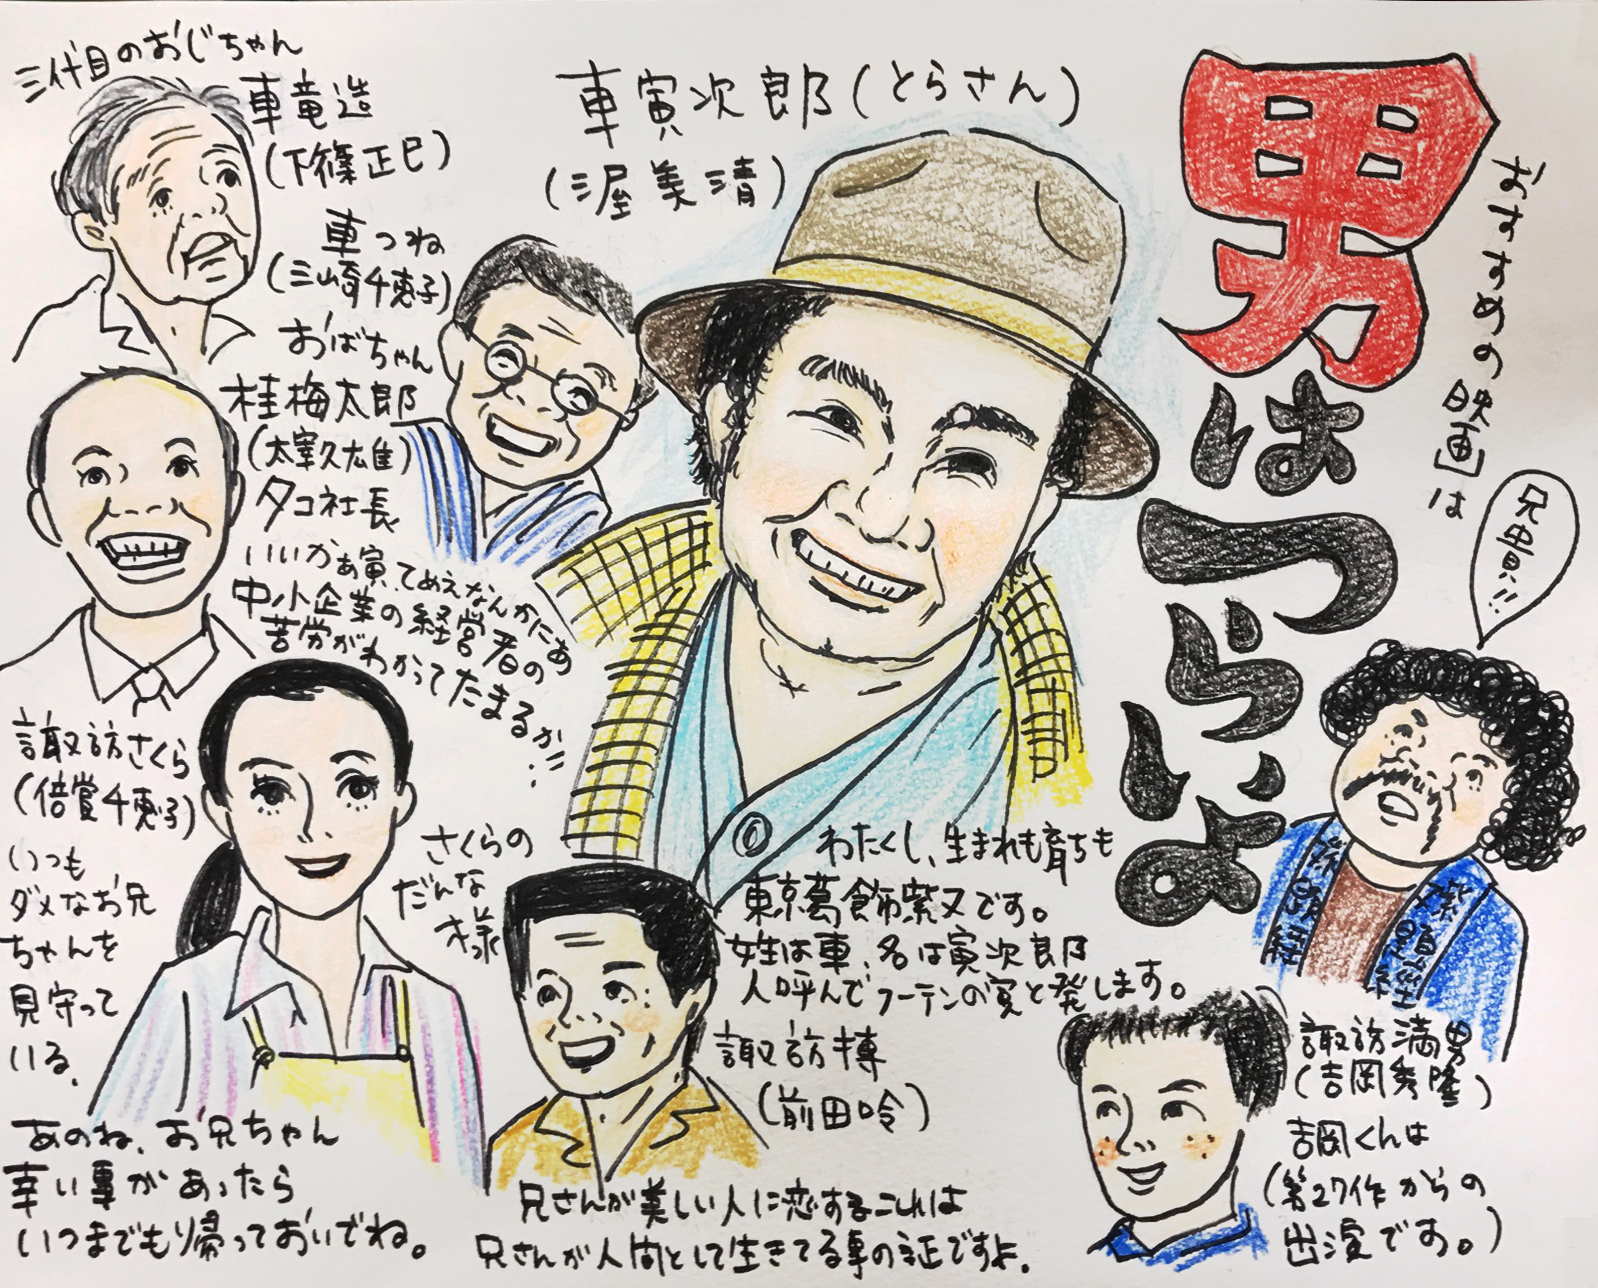 三代目のおじちゃん
車竜造
(下條正巳)
車つね
(三崎千恵子)
おばちゃん
桂梅太郎
(太宰久雄)
タコ社長
いいかぁ寅、てめえなんかにぁ
中小企業の経営者の
苦労がわかってたまるか!!
車寅次郎(とらさん)
(渥美清)
おすすめの映画は
男はつらいよ
兄貴!!
諏訪さくら
(倍賞千恵子)
いつも
ダメなお兄
ちゃんを
見守って
いる。
あのね、お兄ちゃん
辛い事があったら
いつまでも帰っておいでね。
さくらの
だんな
様
わたくし、生まれも育ちも
東京葛飾柴又です。
姓は車、名は寅次郎
人呼んでフーテンの寅と発します。
諏訪博
(前田吟)
兄さんが美しい人に恋するこれは
兄さんが人間として生きてる事の証ですよ。
題経
柴題経
諏訪満男
(吉岡秀隆)
吉岡くんは
(第27作からの
出演です。)